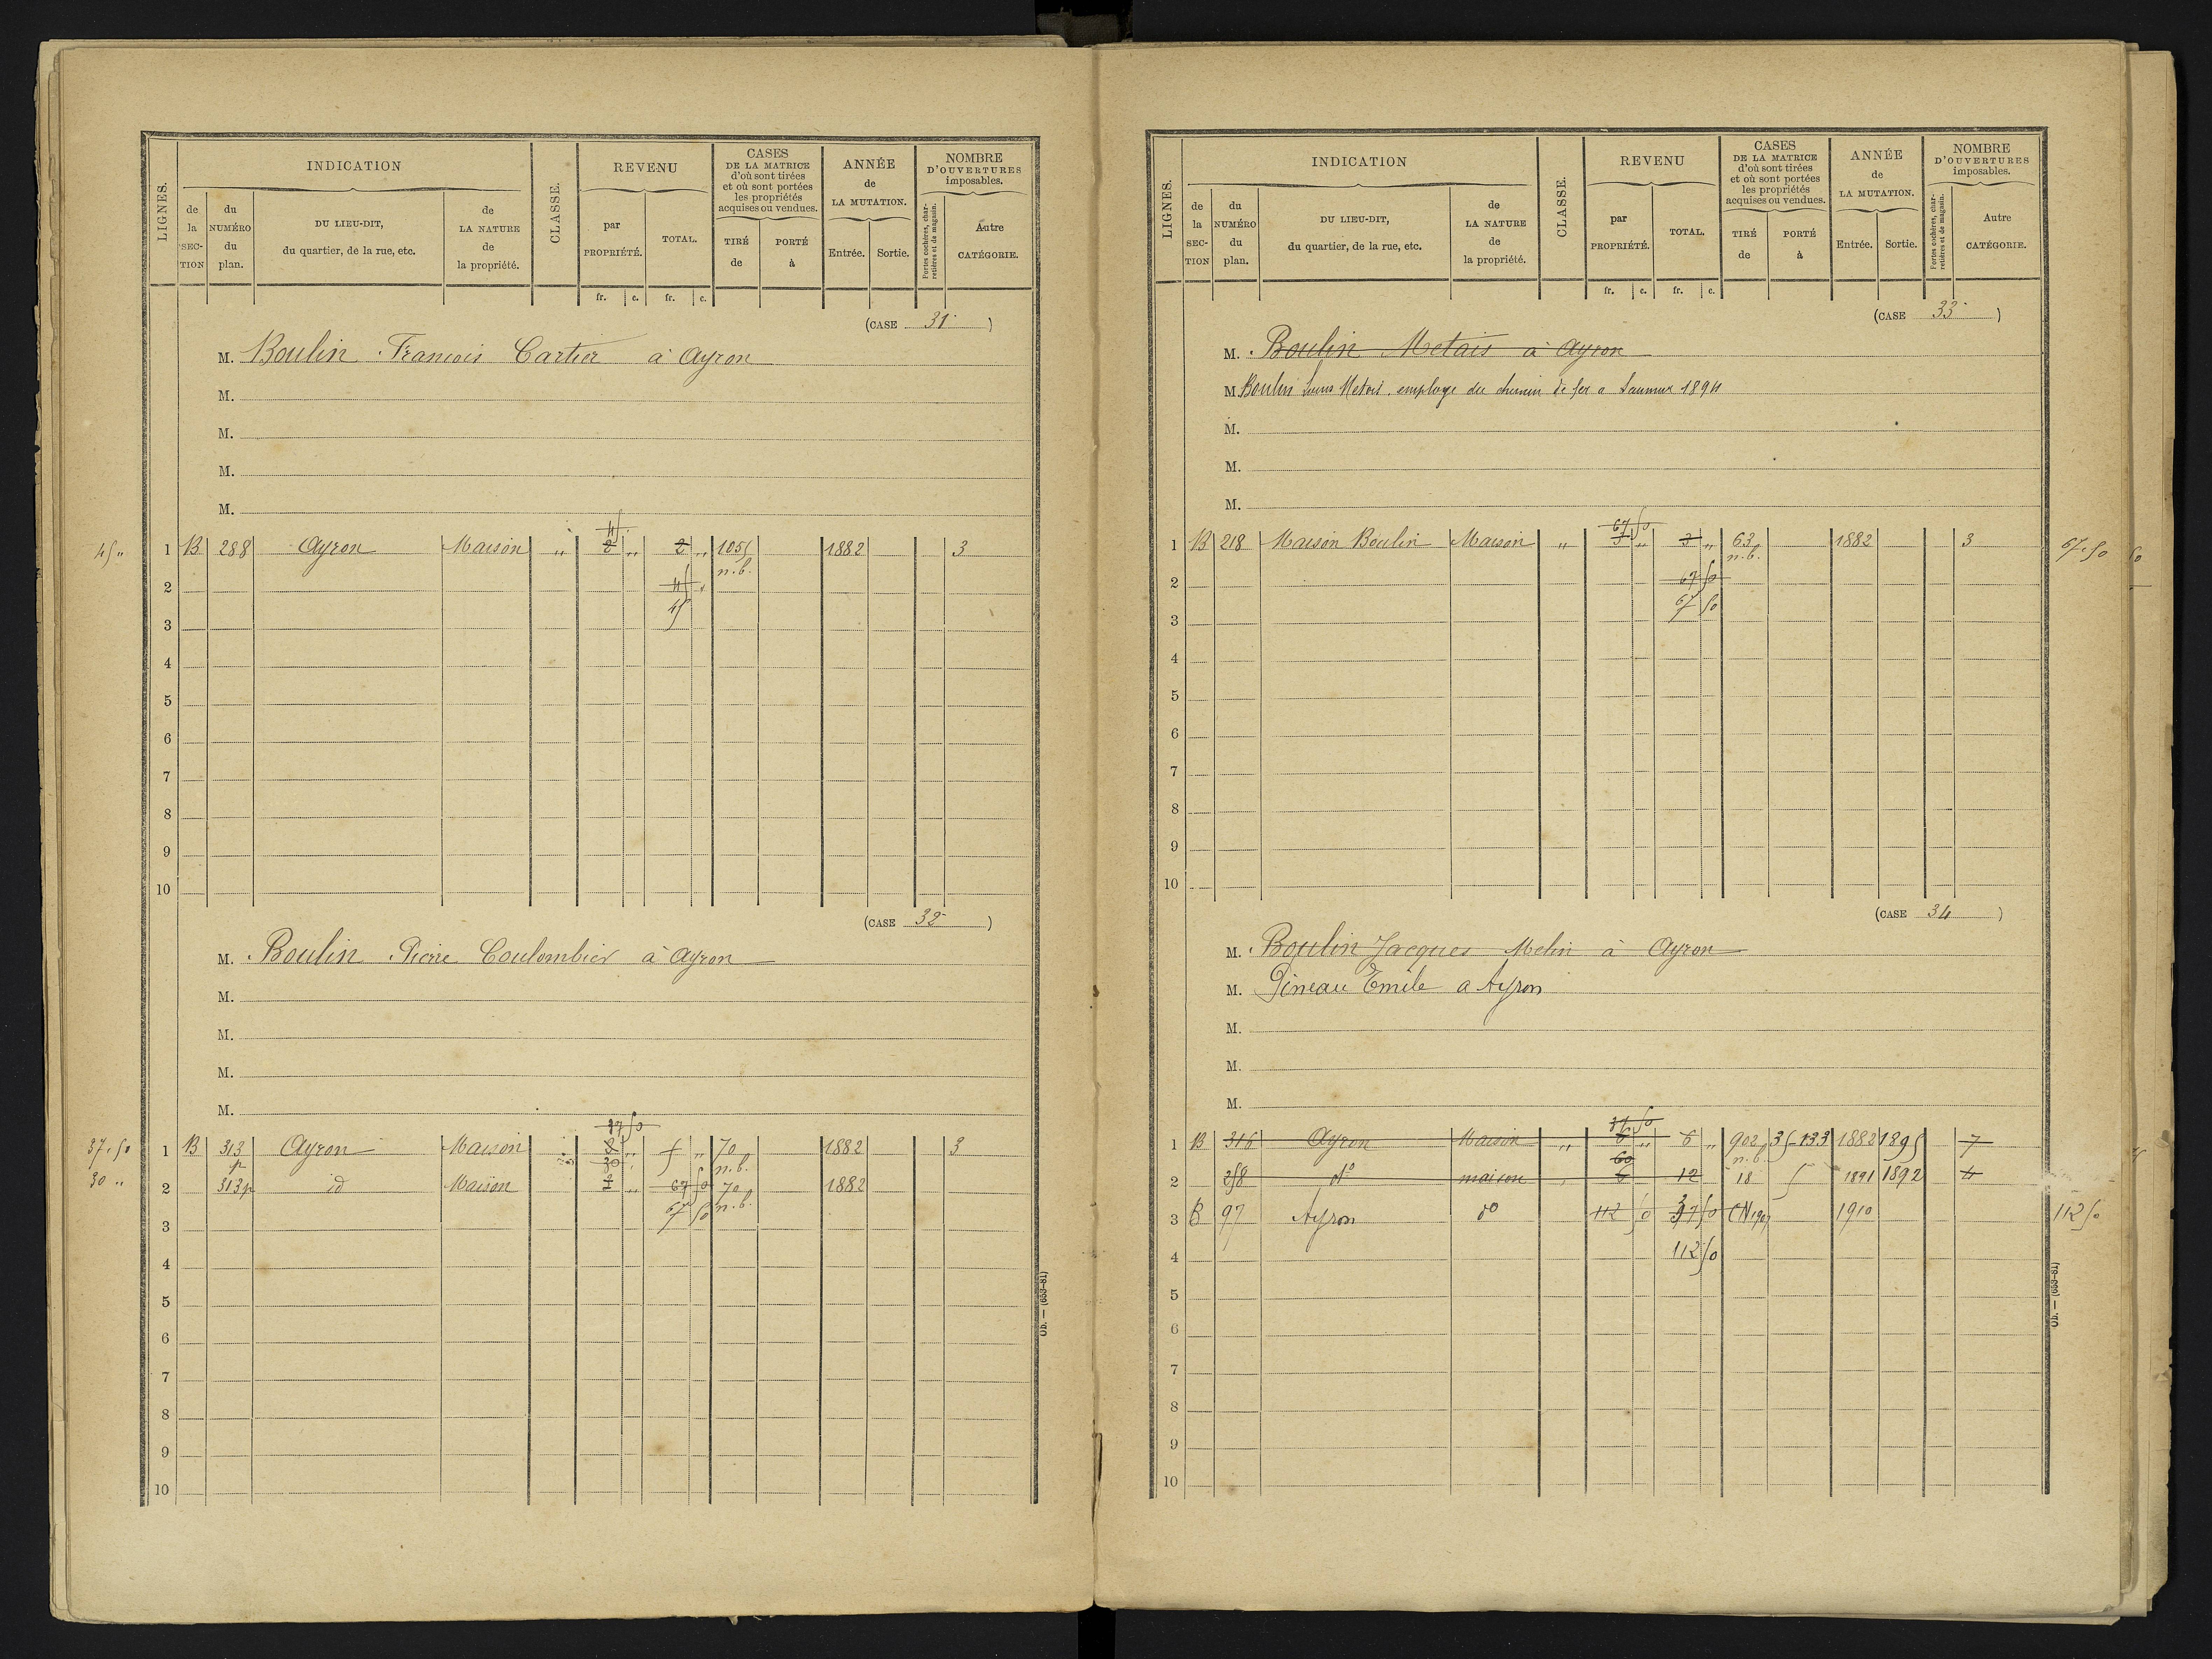 LIGNES.
INDICATION
de la SECTION
du NUMÉRO du plan.
DU LIEU-DIT, du quartier, de la rue, etc.
de LA NATURE de la propriété.
CLASSE.
REVENU
par PROPRIÉTÉ.
TOTAL.
fr. c. fr. c.
CASES DE LA MATRICE d'où sont tirées et où sont portées les propriétés acquises ou vendues.
TIRÉ de
PORTÉ à
ANNÉE de LA MUTATION.
Entrée. Sortie.
NOMBRE D'OUVERTURES imposables.
Portes cochères, charretières et de magasin.
Autre CATÉGORIE.
(CASE 31)
M. Boulin François Cartier à Ayron
M.
M.
M.
M.
45
45 " 1 B 288 Ayron Maison " 2 " 2 " 1055 1882 3
n.b.
2 45 "
45
3
4
5
6
7
8
9
10
(CASE 32)
M. Boulin Pierre Coulombier à Ayron
M.
M.
M.
M.
37 50
37.50 1 B 313 p Ayron Maison 5 " 70 1882 3
30 n.b.
30 " 2 313p id Maison " 67 50 70 1882
67 50 n.b.
3
4
5
6
7
8
9
10
Ob. — (653-81)
LIGNES.
INDICATION
de la SECTION
du NUMÉRO du plan.
DU LIEU-DIT, du quartier, de la rue, etc.
de LA NATURE de la propriété.
CLASSE.
REVENU
par PROPRIÉTÉ.
TOTAL.
fr. c. fr. c.
CASES DE LA MATRICE d'où sont tirées et où sont portées les propriétés acquises ou vendues.
TIRÉ de
PORTÉ à
ANNÉE de LA MUTATION.
Entrée. Sortie.
NOMBRE D'OUVERTURES imposables.
Portes cochères, charretières et de magasin.
Autre CATÉGORIE.
(CASE 33)
M. Boulin Metais à Ayron
M. Boulin Metais, employe du chemin de fer a Saumur 1894
M.
M.
M.
67 50
1 B 218 Maison Boulin Maison " 3 " 3 " 63 1882 3 67.50
n.b.
2 67 50
67 50
3
4
5
6
7
8
9
10
(CASE 34)
M. Boulin Jacques Melin à Ayron
M. Pineau Emile a Ayron
M.
M.
M.
37 50
1 B 316 Ayron Maison " 6 " 6 " 902 35-133 1882 1895 7
60 n.b.
2 258 do maison 6 12 18 5 1891 1892 4
3 B 97 Ayron do 112 50 37 50 CN 1907 1910 112 50
4 112 50
5
6
7
8
9
10
Ob. — (653-81)